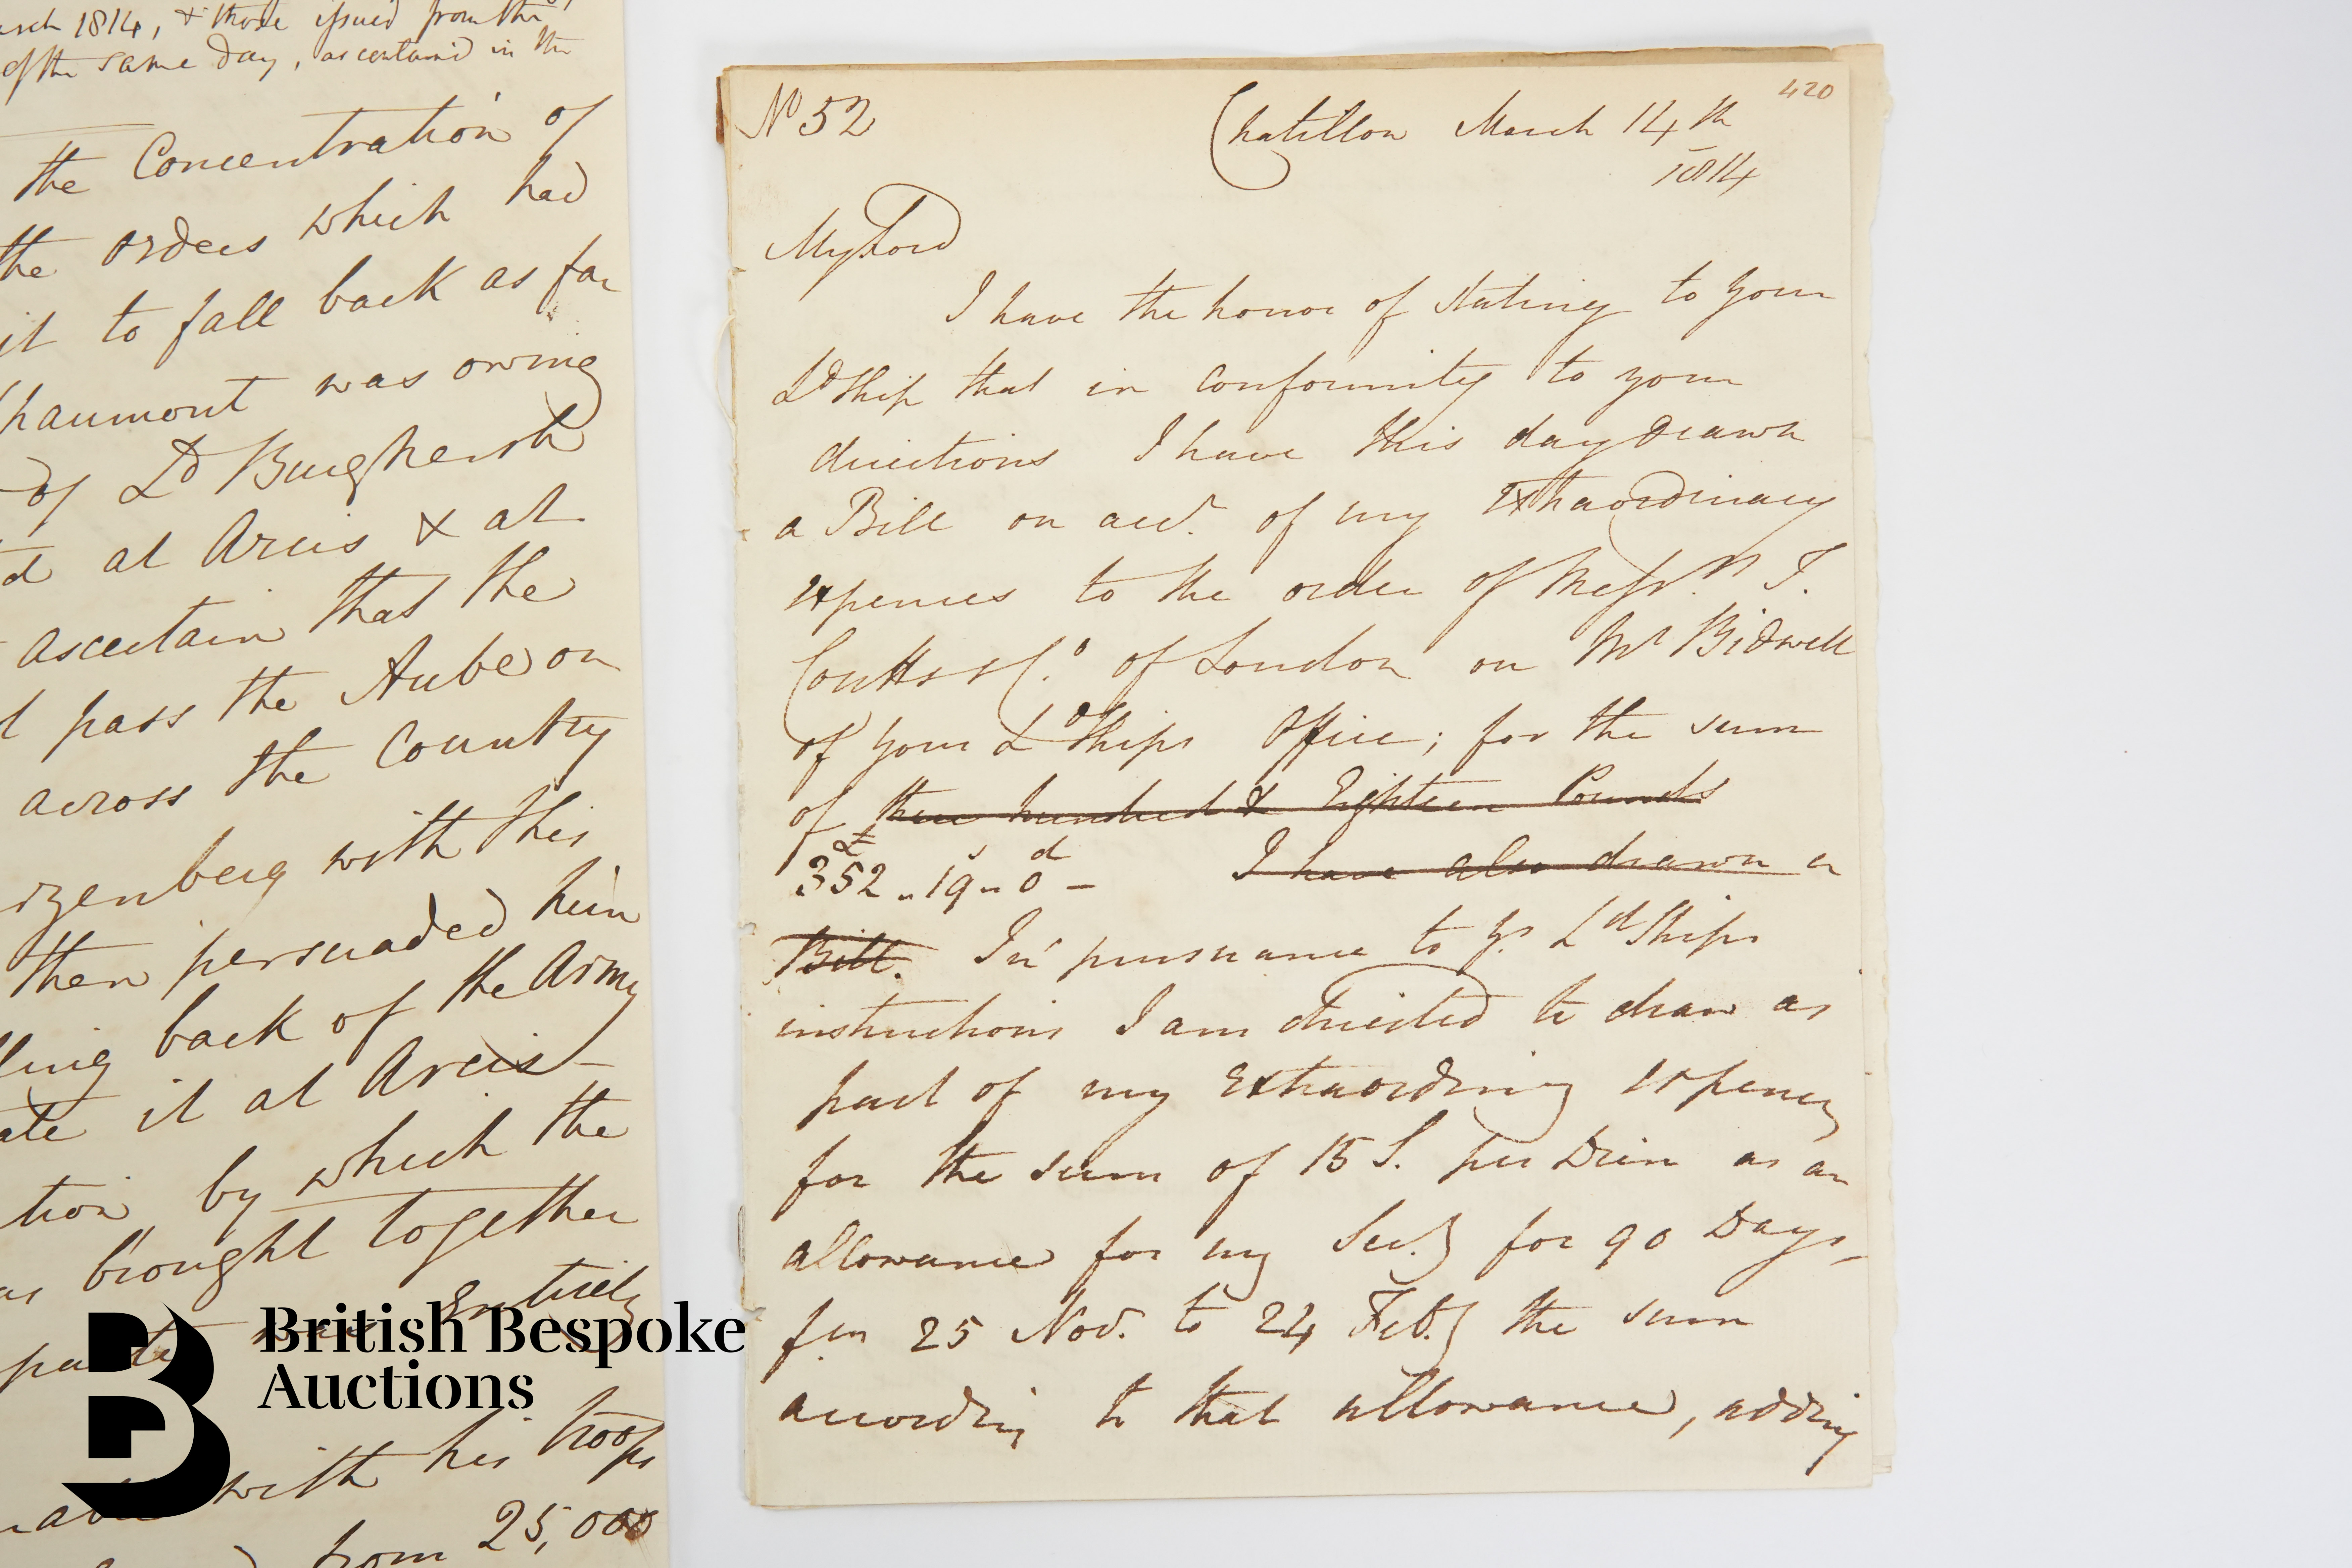 arch 1814, & those issued from the
of the same day, as contained in the
the Concentration of
the orders which had
it to fall back as far
Chaumont was owing
of Ld Burghersh
d at Arcis & at
ascertain that the
pass the Aube on
across the Country
rzenberg with this
then persuaded him
lling back of the Army
ate it at Arcis
tion by which the
as brought together
part was Entirely
with his troops
from 25,000
British Bespoke
Auctions
420
No 52 Chatillon March 14th
1814
My Lord
I have the honor of stating to your
LdShip that in conformity to your
directions I have this day drawn
a Bill on acct. of my Extraordinary
Expences to the order of Messrs. T.
Coutts & Co. of London on Mr Bidwell
of your LdShips Office; for the sum
of three hundred & Eighteen Pounds
£ s d
352 " 19 " 0 – I have also drawn a
Bill. In pursuance to yr LdShips
instructions I am directed to draw as
part of my Extraordiny Expences
for the sum of 15 S. per Diem as an
allowance for my Secy for 90 Days,
fm 25 Nov. to 24 Feby the sum
according to that allowance, adding